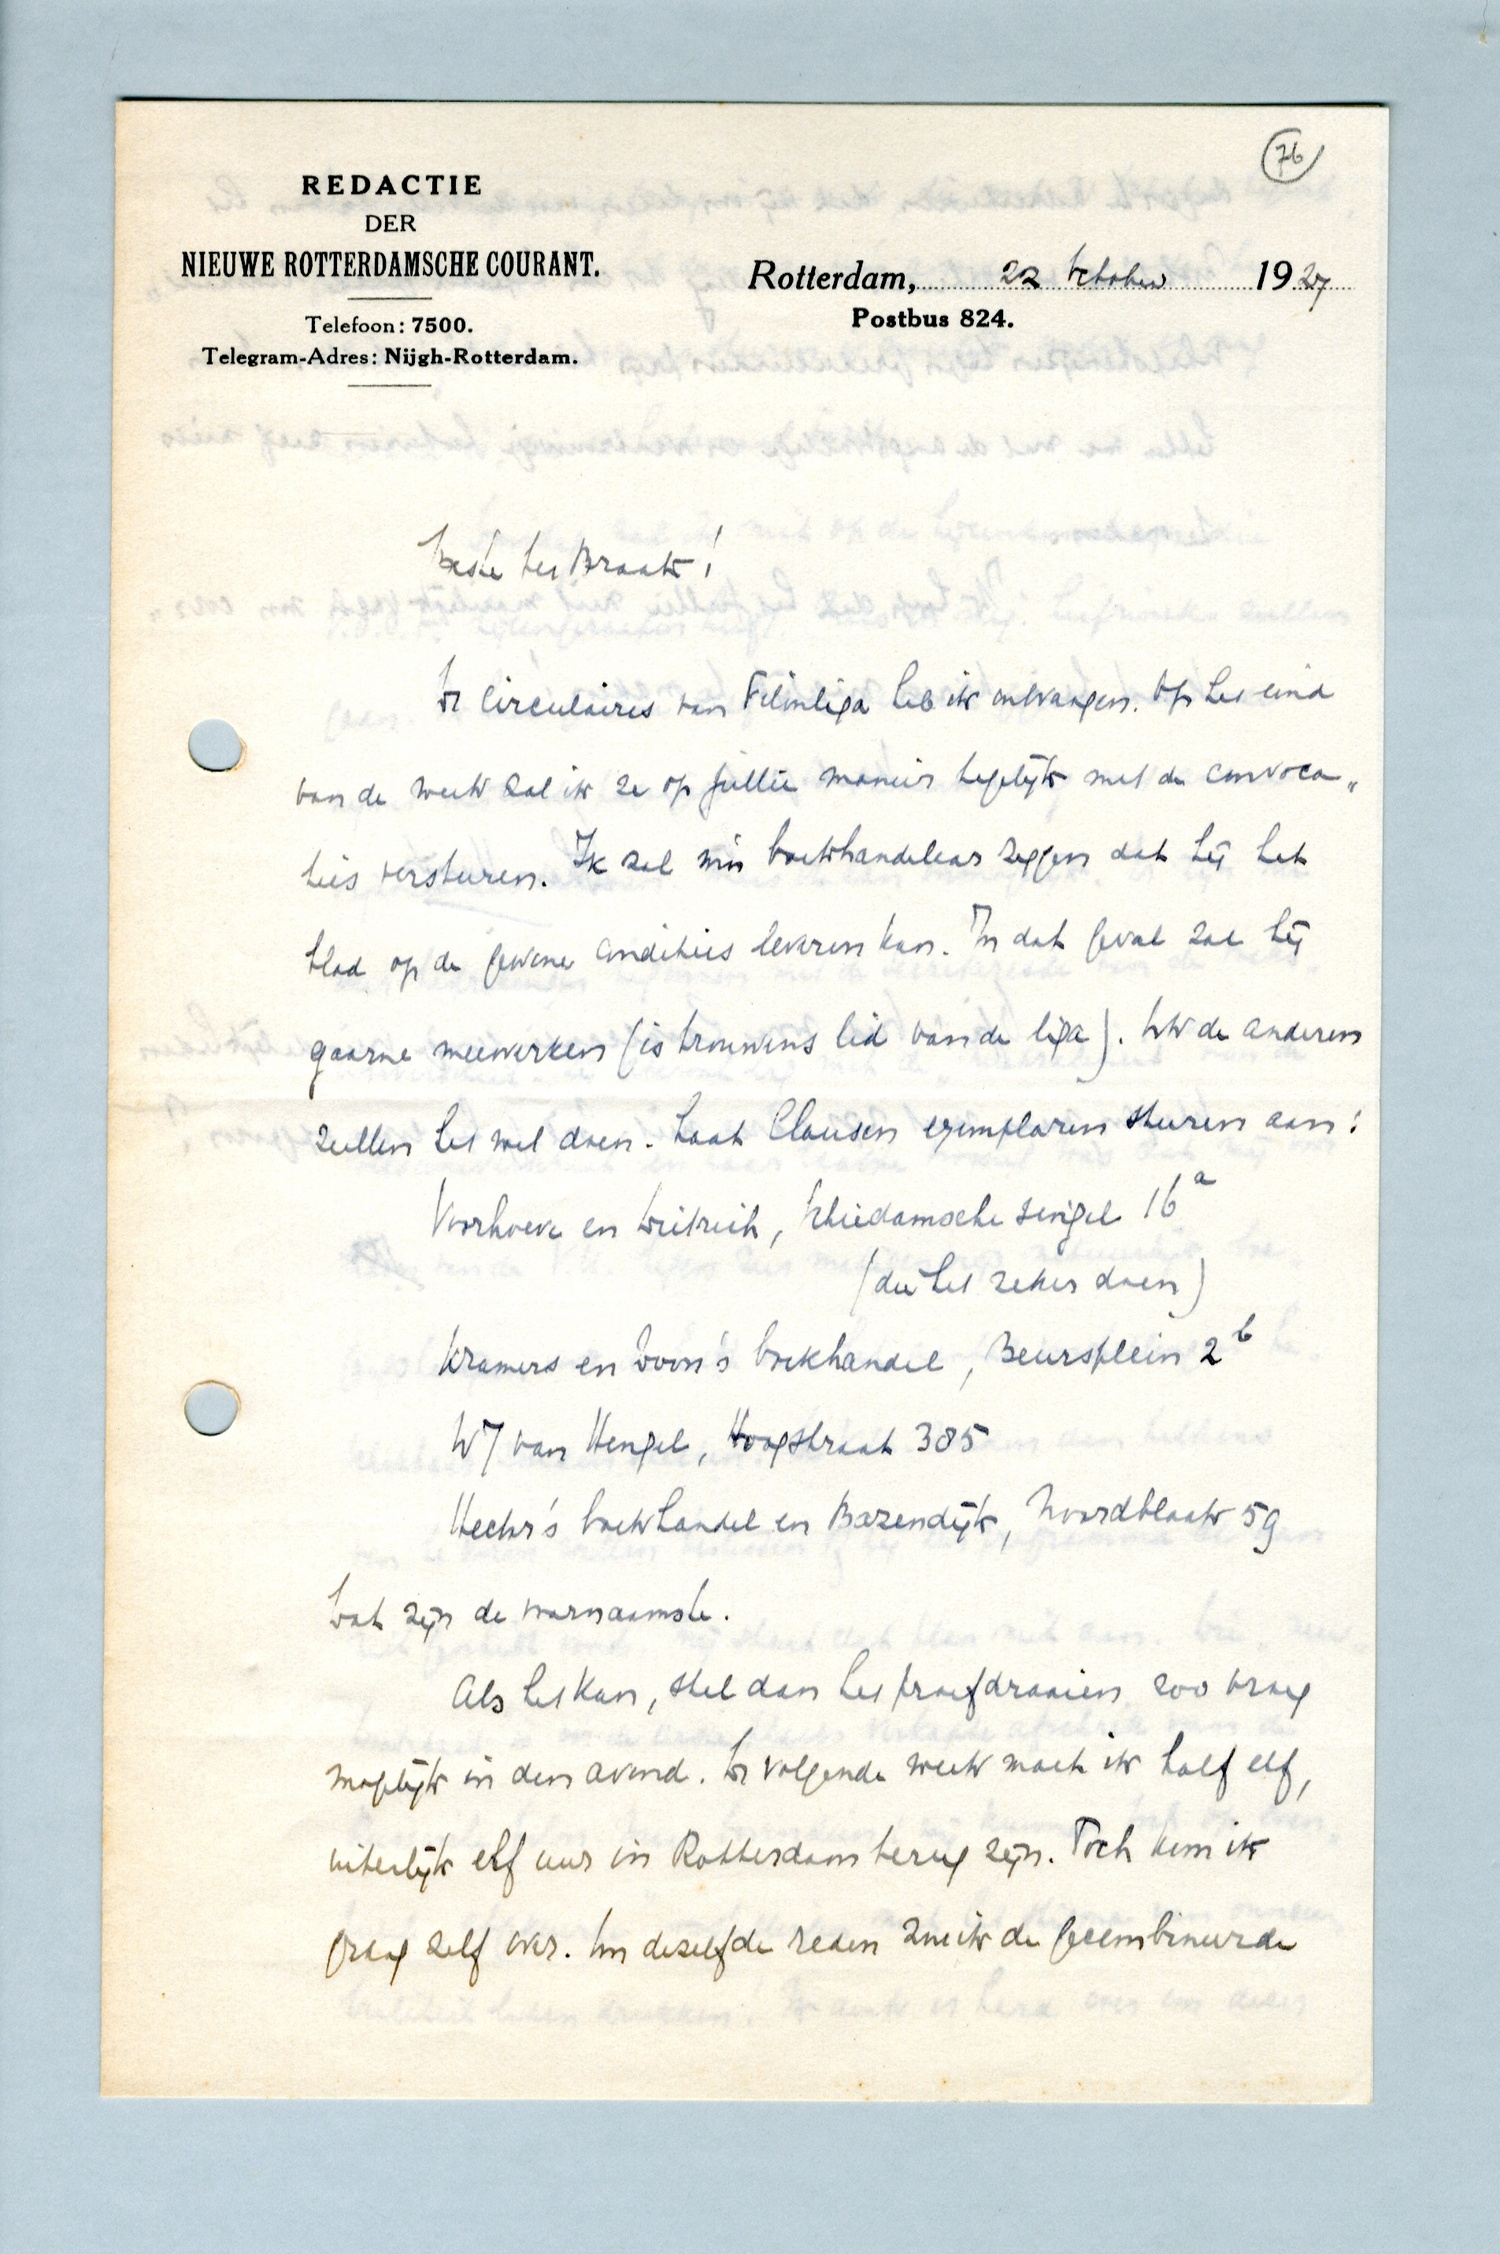 76
REDACTIE
DER
NIEUWE ROTTERDAMSCHE COURANT.
Telefoon: 7500.
Telegram-Adres: Nijgh-Rotterdam.
Rotterdam, 22 October 1927
Postbus 824.
Beste ter Braak!
De circulaires van Filmliga heb ik ontvangen. Op het eind
van de week zal ik ze op jullie manier tegelijk met de convoca„
ties versturen. Ik zal mijn boekhandelaar zeggen dat hij het
blad op de gewone condities leveren kan. In dat geval zal hij
gaarne meewerken (is trouwens lid van de liga). Ook de anderen
zullen het wel doen. Laat Clausen exemplaren sturen aan:
Voorhoeve en Dietrich, Schiedamsche singel 16a
(die het zeker doen)
Kramers en Zoon's boekhandel, Beursplein 2b
WJ van Hengel, Hoogstraat 385
Hecht's boekhandel en Bazendijk, Noordblaak 59
Dat zijn de voornaamste.
Als het kan, stel dan het proefdraaien zoo vroeg
mogelijk in den avond. De volgende week moet ik half elf,
uiterlijk elf uur in Rotterdam terug zijn. Toch kom ik
graag zelf over. Om dezelfde reden zou ik de gecombineerde